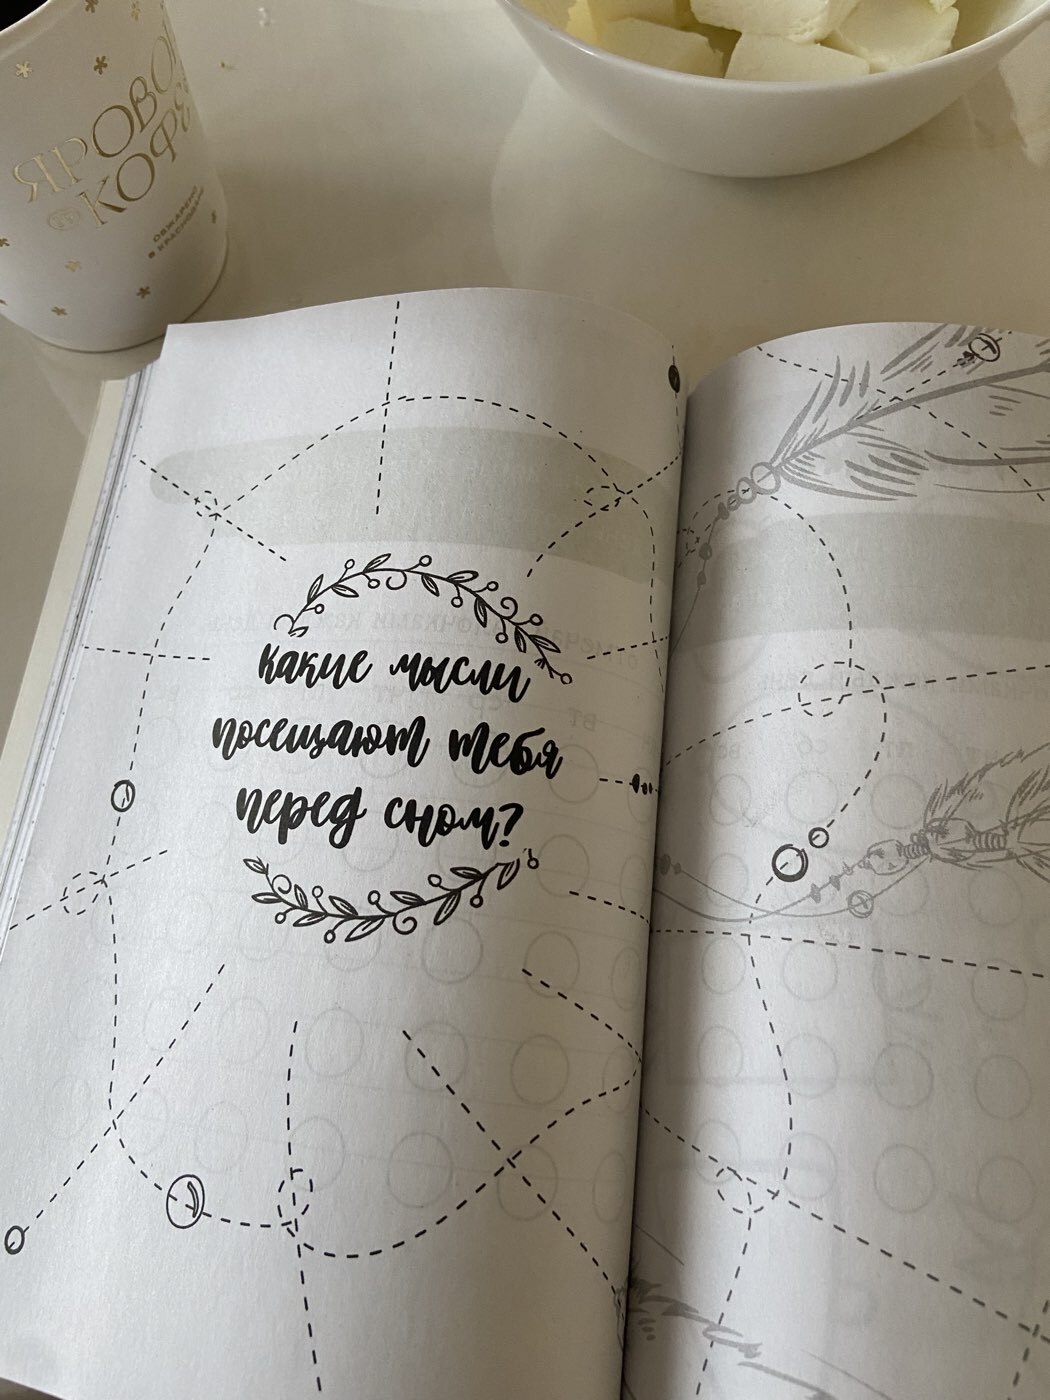 ЯРОВОЙ
КОФЕ
ОБЖАРЕНО
Какие мысли
посещают тебя
перед сном?